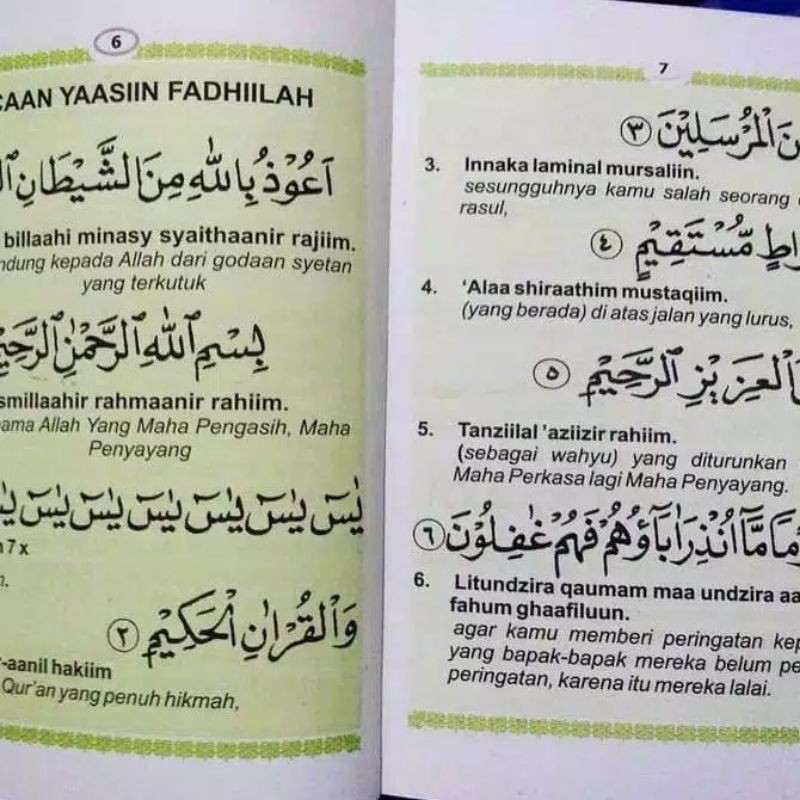 6
YAASIIN FADHIILAH
اَعُوْذُ بِاللّٰهِ مِنَ الشَّيْطَانِ
billaahi minasy syaithaanir rajiim.
kepada Allah dari godaan syetan
yang terkutuk
بِسْمِ اللّٰهِ الرَّحْمٰنِ
rahmaanir rahiim.
Allah Yang Maha Pengasih, Maha
Penyayang
يٰسَ يٰسَ يٰسَ يٰسَ يٰسَ يٰسَ
7 x
وَالْقُرْاٰنِ الْحَكِيْمِ ٢
hakiim
Qur'an yang penuh hikmah,
7
الْمُرْسَلِيْنَ ٣
3. Innaka laminal mursaliin.
sesungguhnya kamu salah seorang
rasul,
مُّسْتَقِيْمٍ ٤
4. 'Alaa shiraathim mustaqiim.
(yang berada) di atas jalan yang lurus,
الْعَزِيْزِ الرَّحِيْمِ ٥
5. Tanziilal 'aziizir rahiim.
(sebagai wahyu) yang diturunkan
Maha Perkasa lagi Maha Penyayang.
مَّآ اُنْذِرَ اٰبَآؤُهُمْ فَهُمْ غٰفِلُوْنَ ٦
6. Litundzira qaumam maa undzira
fahum ghaafiluun.
agar kamu memberi peringatan
yang bapak-bapak mereka belum
peringatan, karena itu mereka lalai.